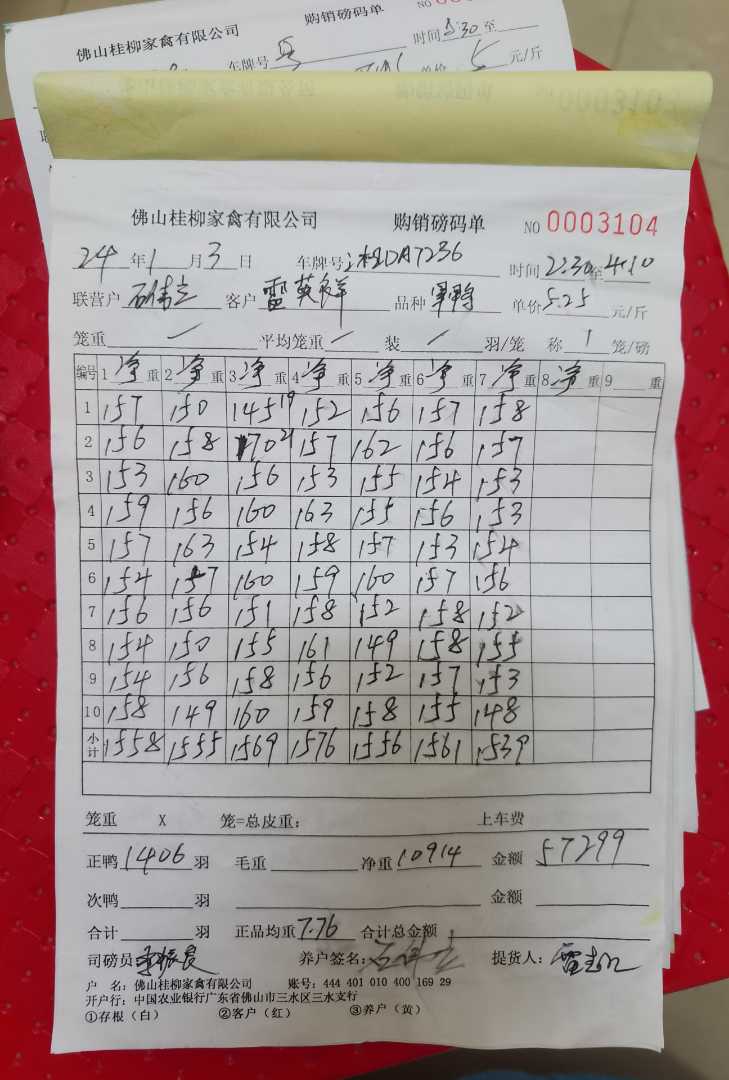 佛山桂柳家禽有限公司 购销磅码单 NO
车牌号 时间5:30至
单价 5 元/斤
0003103
佛山桂柳家禽有限公司 购销磅码单 NO 0003104
24年1月3日 车牌号:桂DA7236 时间2:30至4:10
联营户 客户 雷英祥 品种 单价5.25元/斤
笼重 — 平均笼重 — 装 — 羽/笼 称 1 笼/磅
编号 1净重 2净重 3净重 4净重 5净重 6净重 7净重 8净重 9 重
1 157 150 145 19 152 156 157 158
2 156 158 170 21 157 162 156 157
3 153 160 156 153 155 154 153
4 159 156 160 163 155 156 153
5 157 163 154 158 157 153 154
6 154 157 160 159 160 157 156
7 156 156 151 158 152 158 152
8 154 150 155 161 149 158 155
9 154 156 158 156 152 157 153
10 158 149 160 159 158 155 148
小计 1558 1555 1569 1576 1556 1561 1539
笼重 X 笼=总皮重: 上车费
正鸭1406羽 毛重 净重10914 金额 57299
次鸭 羽 金额
合计 羽 正品均重7.76 合计总金额
司磅员 养户签名: 提货人:
户 名: 佛山桂柳家禽有限公司 账号: 444 401 010 400 169 29
开户行: 中国农业银行广东省佛山市三水区三水支行
①存根(白) ②客户(红) ③养户(黄)